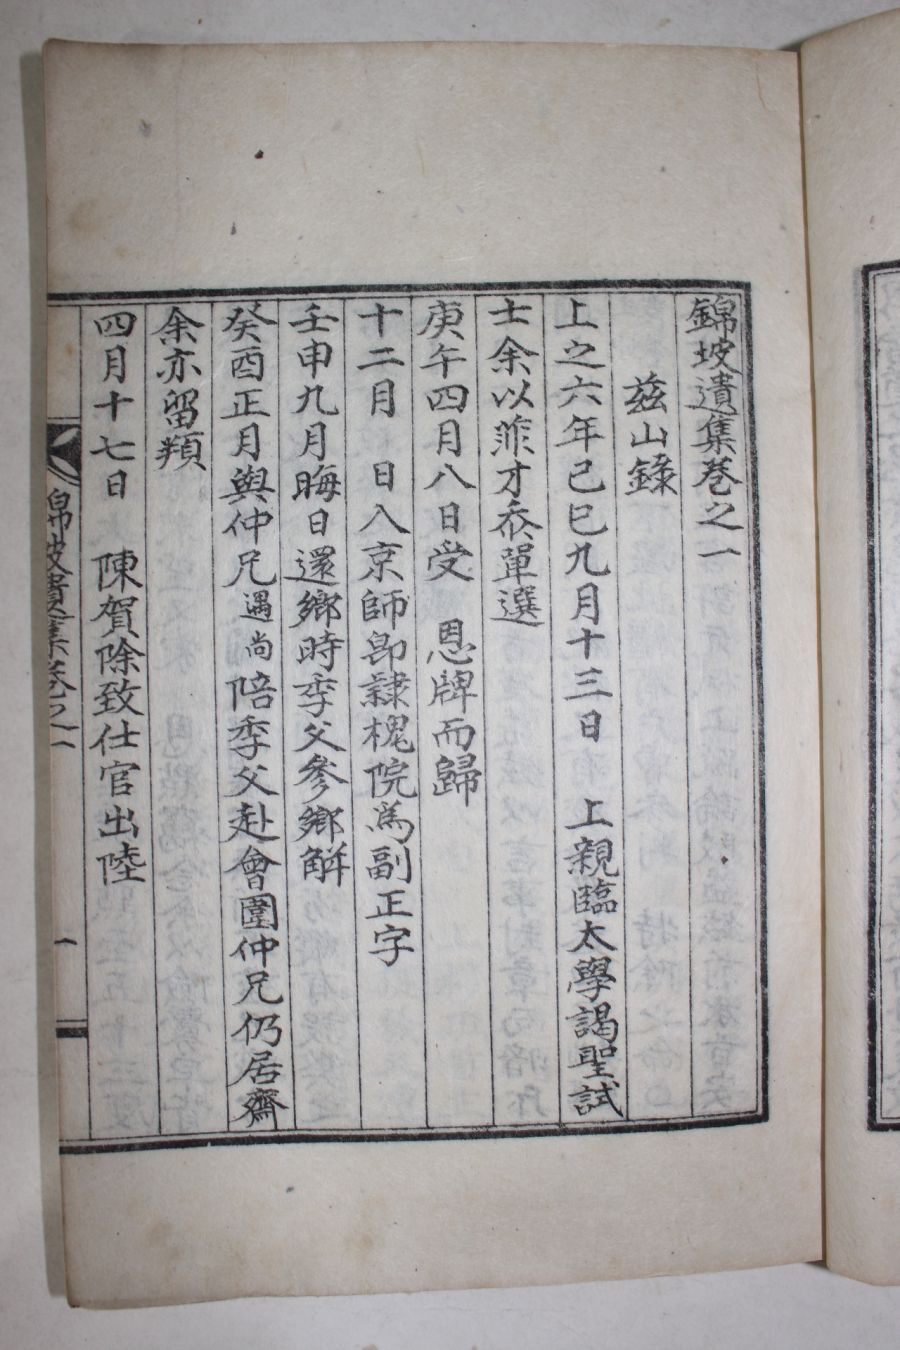 錦坡遺集卷之一
茲山錄
上之六年己巳九月十三日 上親臨太學謁聖試
士余以菲才忝單選
庚午四月八日受 恩牌而歸
十二月 日入京師即隷槐院爲副正字
壬申九月晦日還鄉時季父參鄉解
癸酉正月與仲兄遇尚陪季父赴會圍仲兄仍居齋
余亦留頖
四月十七日 陳賀除致仕官出陸
錦坡遺集卷之一
一